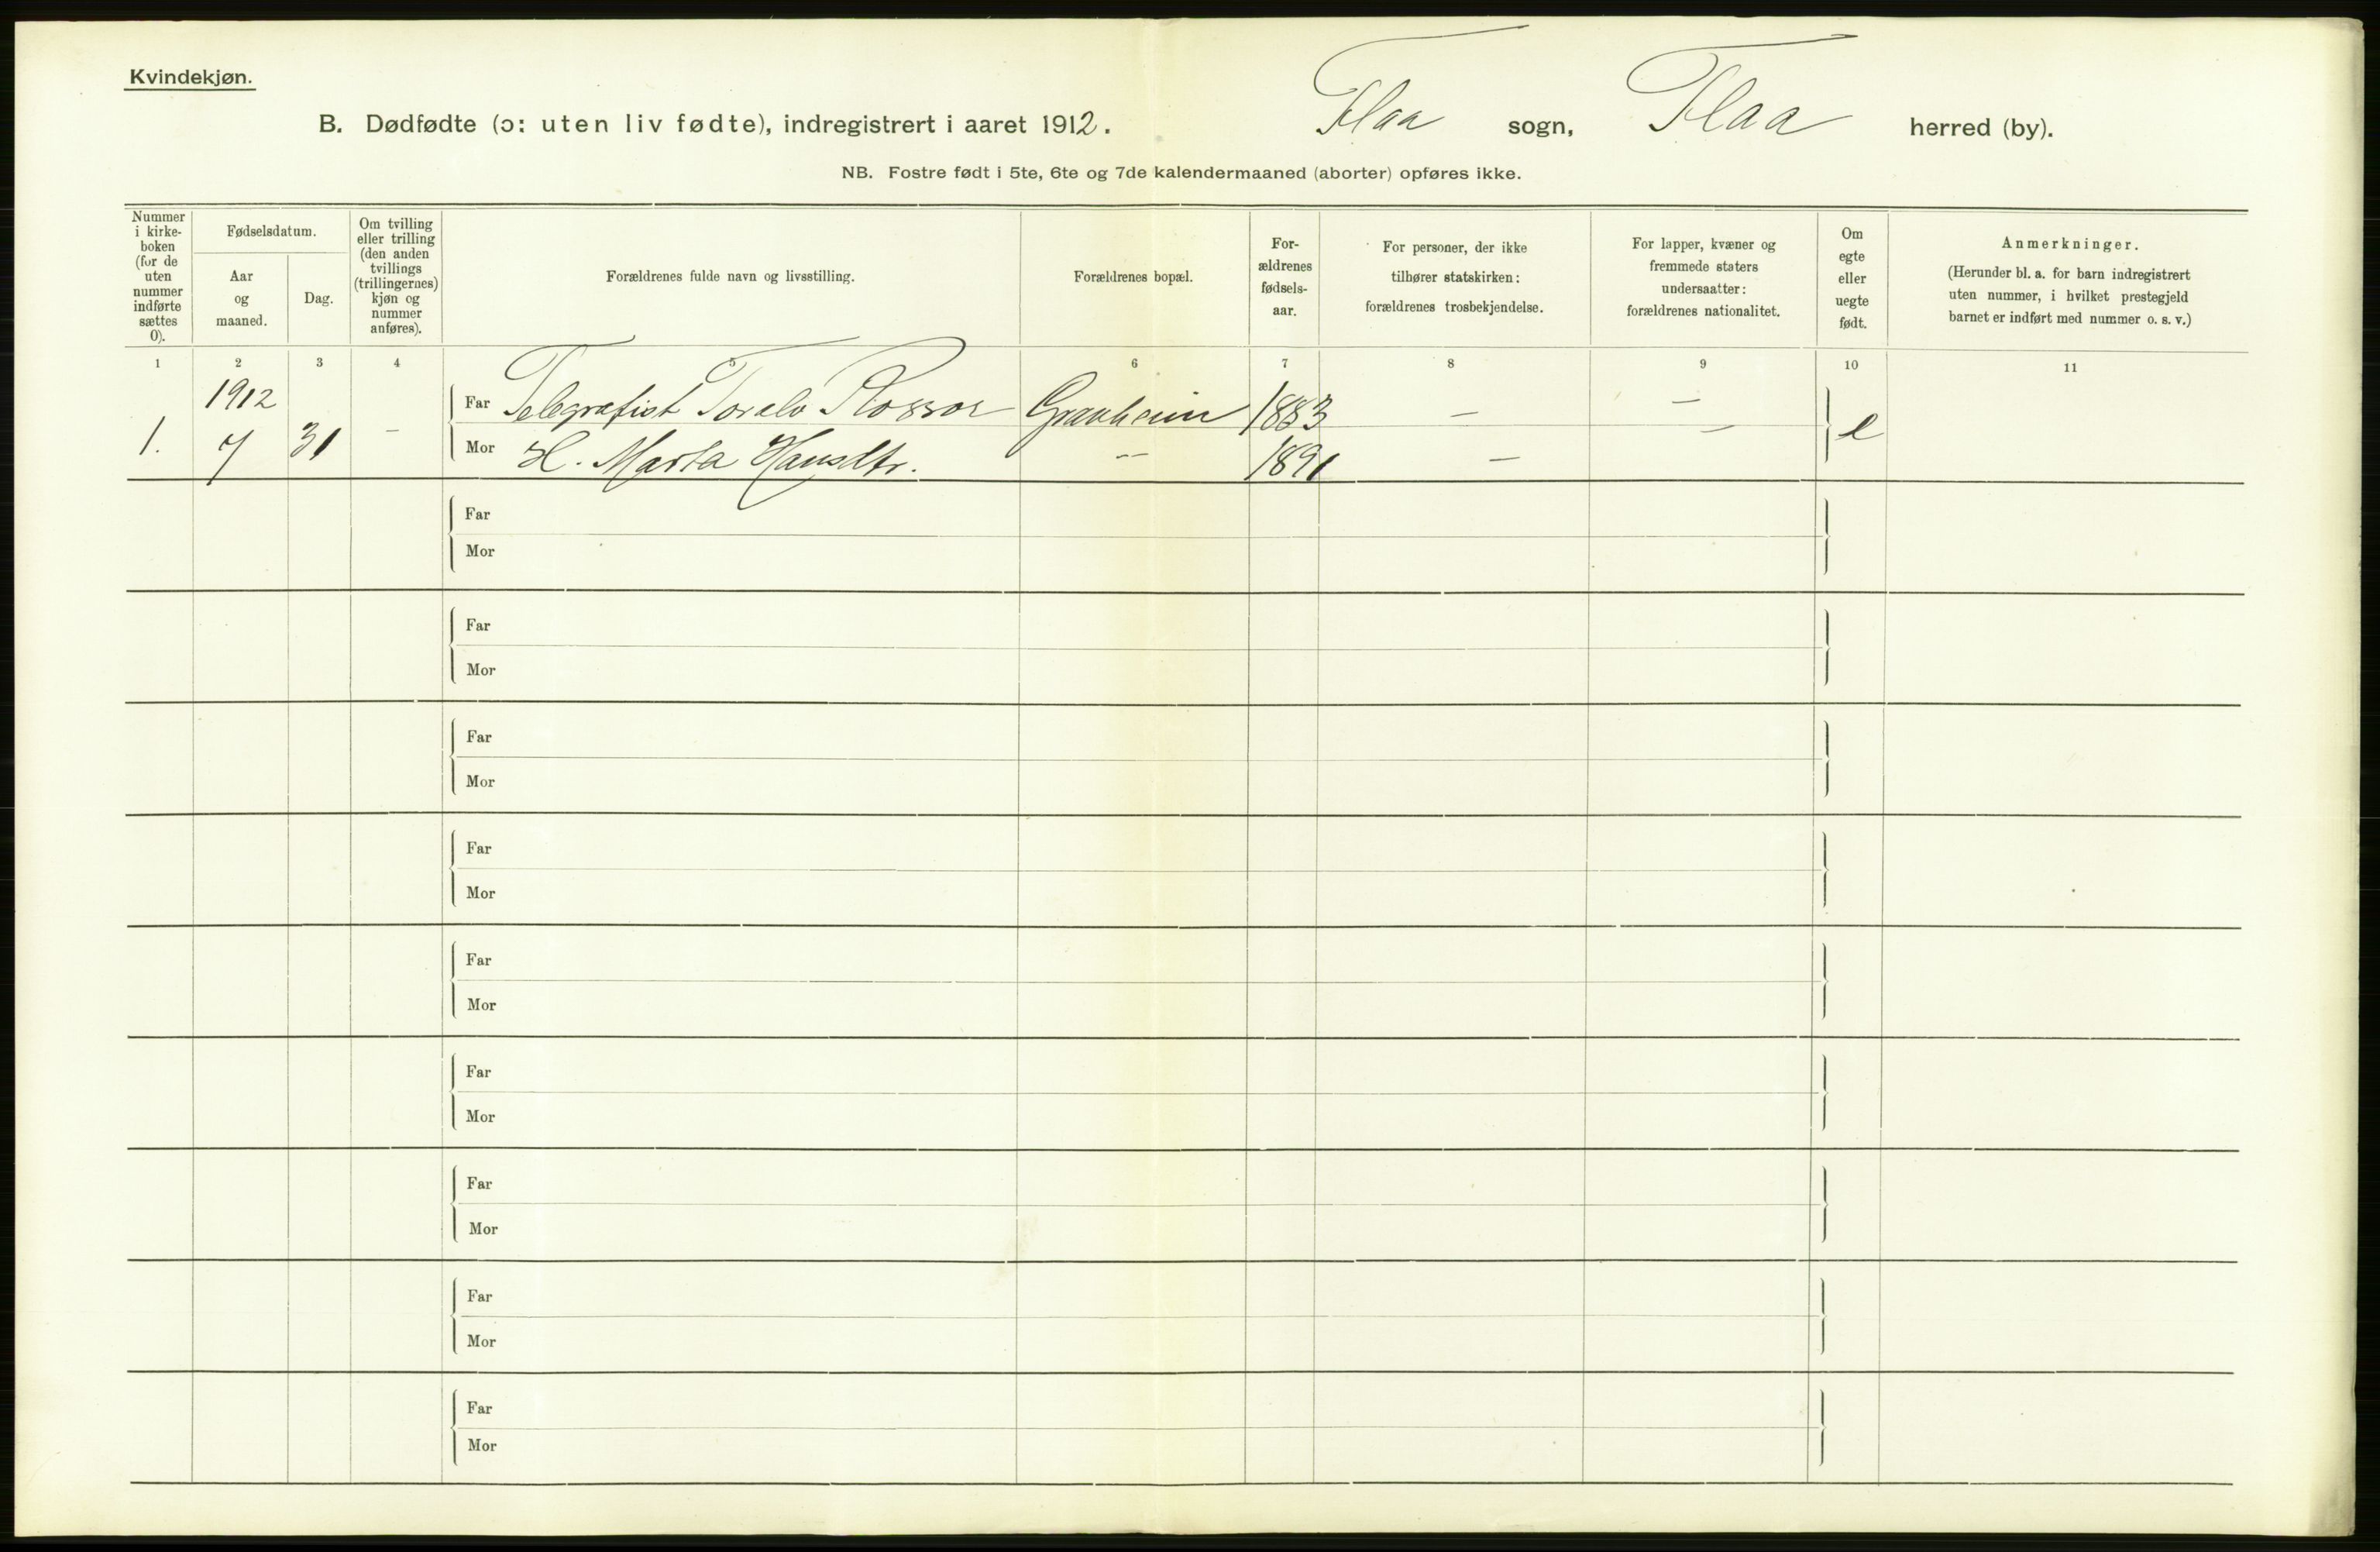 Kvindekjøn.
B. Dødfødte (ɔ: uten liv fødte), indregistrert i aaret 1912. Flaa sogn, Flaa herred (by).
NB. Fostre født i 5te, 6te og 7de kalendermaaned (aborter) opføres ikke.
Nummer
i kirke-
boken
(for de
uten
nummer
indførte
sættes
0).
Fødselsdatum.
Aar
og
maaned.
Dag.
Om tvilling
eller trilling
(den anden
tvillings
(trillingernes)
kjøn og
nummer
anføres).
Forældrenes fulde navn og livsstilling.
Forældrenes bopæl.
For-
ældrenes
fødsels-
aar.
For personer, der ikke
tilhører statskirken:
forældrenes trosbekjendelse.
For lapper, kvæner og
fremmede staters
undersaatter:
forældrenes nationalitet.
Om
egte
eller
uegte
født.
Anmerkninger.
(Herunder bl. a. for barn indregistrert
uten nummer, i hvilket prestegjeld
barnet er indført med nummer o. s. v.)
1 2 3 4 5 6 7 8 9 10 11
1912
Far Telegrafist Toralv 1883 – –
1. 7 31 – e
Mor H. Marta Hansdtr. – 1891 – –
Far
Mor
Far
Mor
Far
Mor
Far
Mor
Far
Mor
Far
Mor
Far
Mor
Far
Mor
Far
Mor